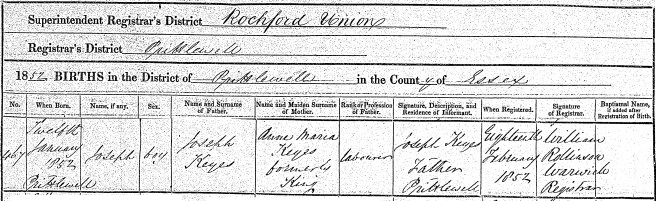 Superintendent Registrar's District Rochford Union
Registrar's District Prittlewell
1852 BIRTHS in the District of Prittlewell in the County of Essex
No. When Born. Name, if any. Sex. Name and Surname of Father. Name and Maiden Surname of Mother. Rank or Profession of Father. Signature, Description, and Residence of Informant. When Registered. Signature of Registrar. Baptismal Name, if added after Registration of Birth.
467 Twelfth January 1852 Prittlewell Joseph boy Joseph Keyes Anne Maria Keyes formerly King Labourer Joseph Keyes Father Prittlewell Eighteenth February 1852 William Warwick Registrar